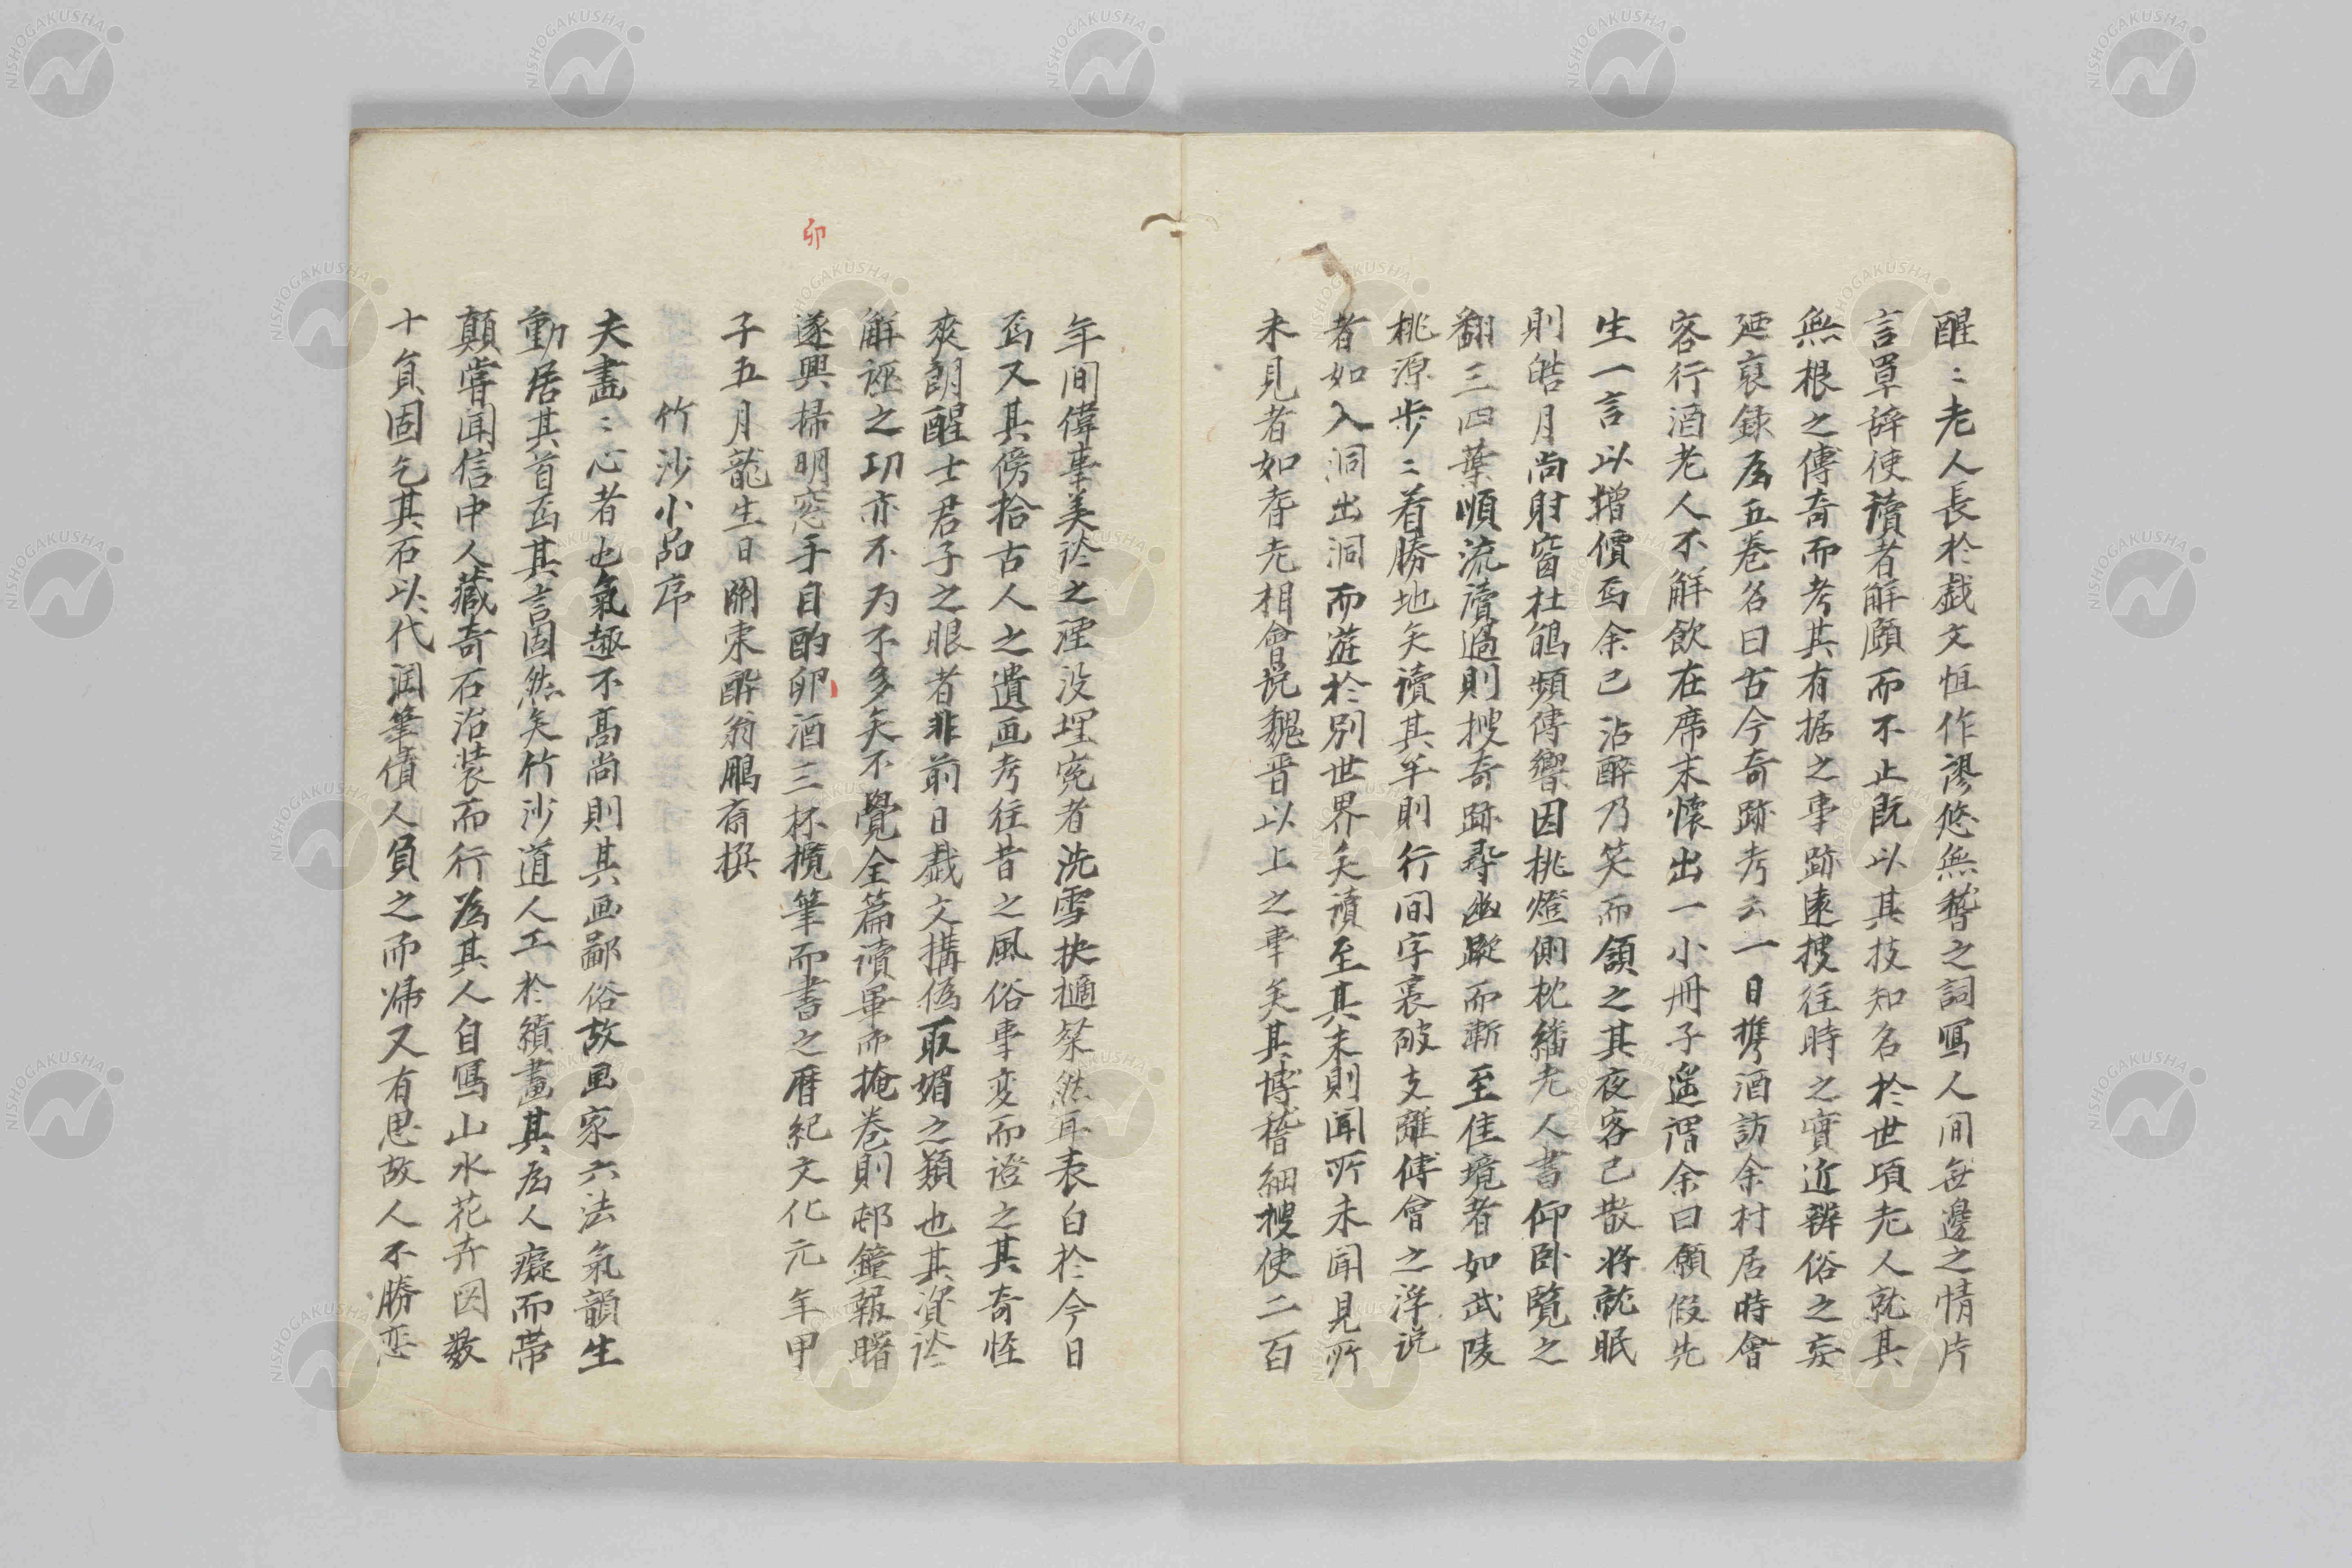 醒〻老人長於戯文恒作謬悠無稽之詞寫人间每邊之情片
言單辞使讀者解頤而不止既以其技知名於世頃老人就其
無根之傳奇而考其有据之事跡遠搜往時之實近辨俗之妄
廼裒録為五巻名曰古今奇跡考云一日携酒訪余村居時會
客行酒老人不解飲在席末懐出一小冊子遥謂余曰願假先
生一言以增價焉余已沾醉乃笑而領之其夜客已散将就眠
則皓月尚射窗杜鵑頻傳響因挑燈側枕繙老人書仰卧覧之
翻三四葉順流讀過則搜奇跡尋幽蹤而漸至佳境者如武陵
桃源歩〻着勝地矣讀其半則行间字裏破支離傅會之浮说
者如入洞出洞而遊於別世界矣讀至其末則聞所未聞見所
未見者如耆老相會说魏晋以上之事矣其博稽細搜使二百
年间偉事美谈之湮没埋寃者洗雪抉擿粲然耳表白於今日
焉又其傍拾古人之遺画考往昔之風俗事変而證之其奇怪
爽朗醒士君子之眼者非前日戯文搆偽取媚之類也其資谈
解誣之功亦不为不多矣不覺全篇讀畢而掩巻則邨鐘報曙
遂興掃明窓手自酌卯酒三杯攬筆而書之暦紀文化元年甲
子五月龍生日關東酔翁鵬斎撰
竹沙小品序
夫畫〻心者也氣趣不髙尚則其画鄙俗故画家六法氣韻生
動居其首焉其言固然矣竹沙道人工於繢畫其為人癡而帯
顛嘗聞信中人藏奇石治装而行為其人自寫山水花卉図数
十負固乞其石以代润筆債人負之而帰又有思故人不勝恋
卯